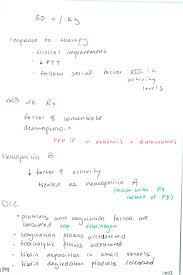 50 u/kg
response to therapy
- clinical improvement
- ↓ PTT
- follow serial factor VIII:C
activity
levels
vWB dz Rx
factor 8 concentrate
desmopressin
FFP if
hemophilia B
↓ factor 9 activity
treated as hemophilia A
(factor
instead of F8)
DIC
• platelets and coagulation factors are
consumed esp. fibrinogen
• coagulation process accelerated
• fibrinolytic process accelerated
• fibrin deposition in small vessels
• fibrin degradation products released